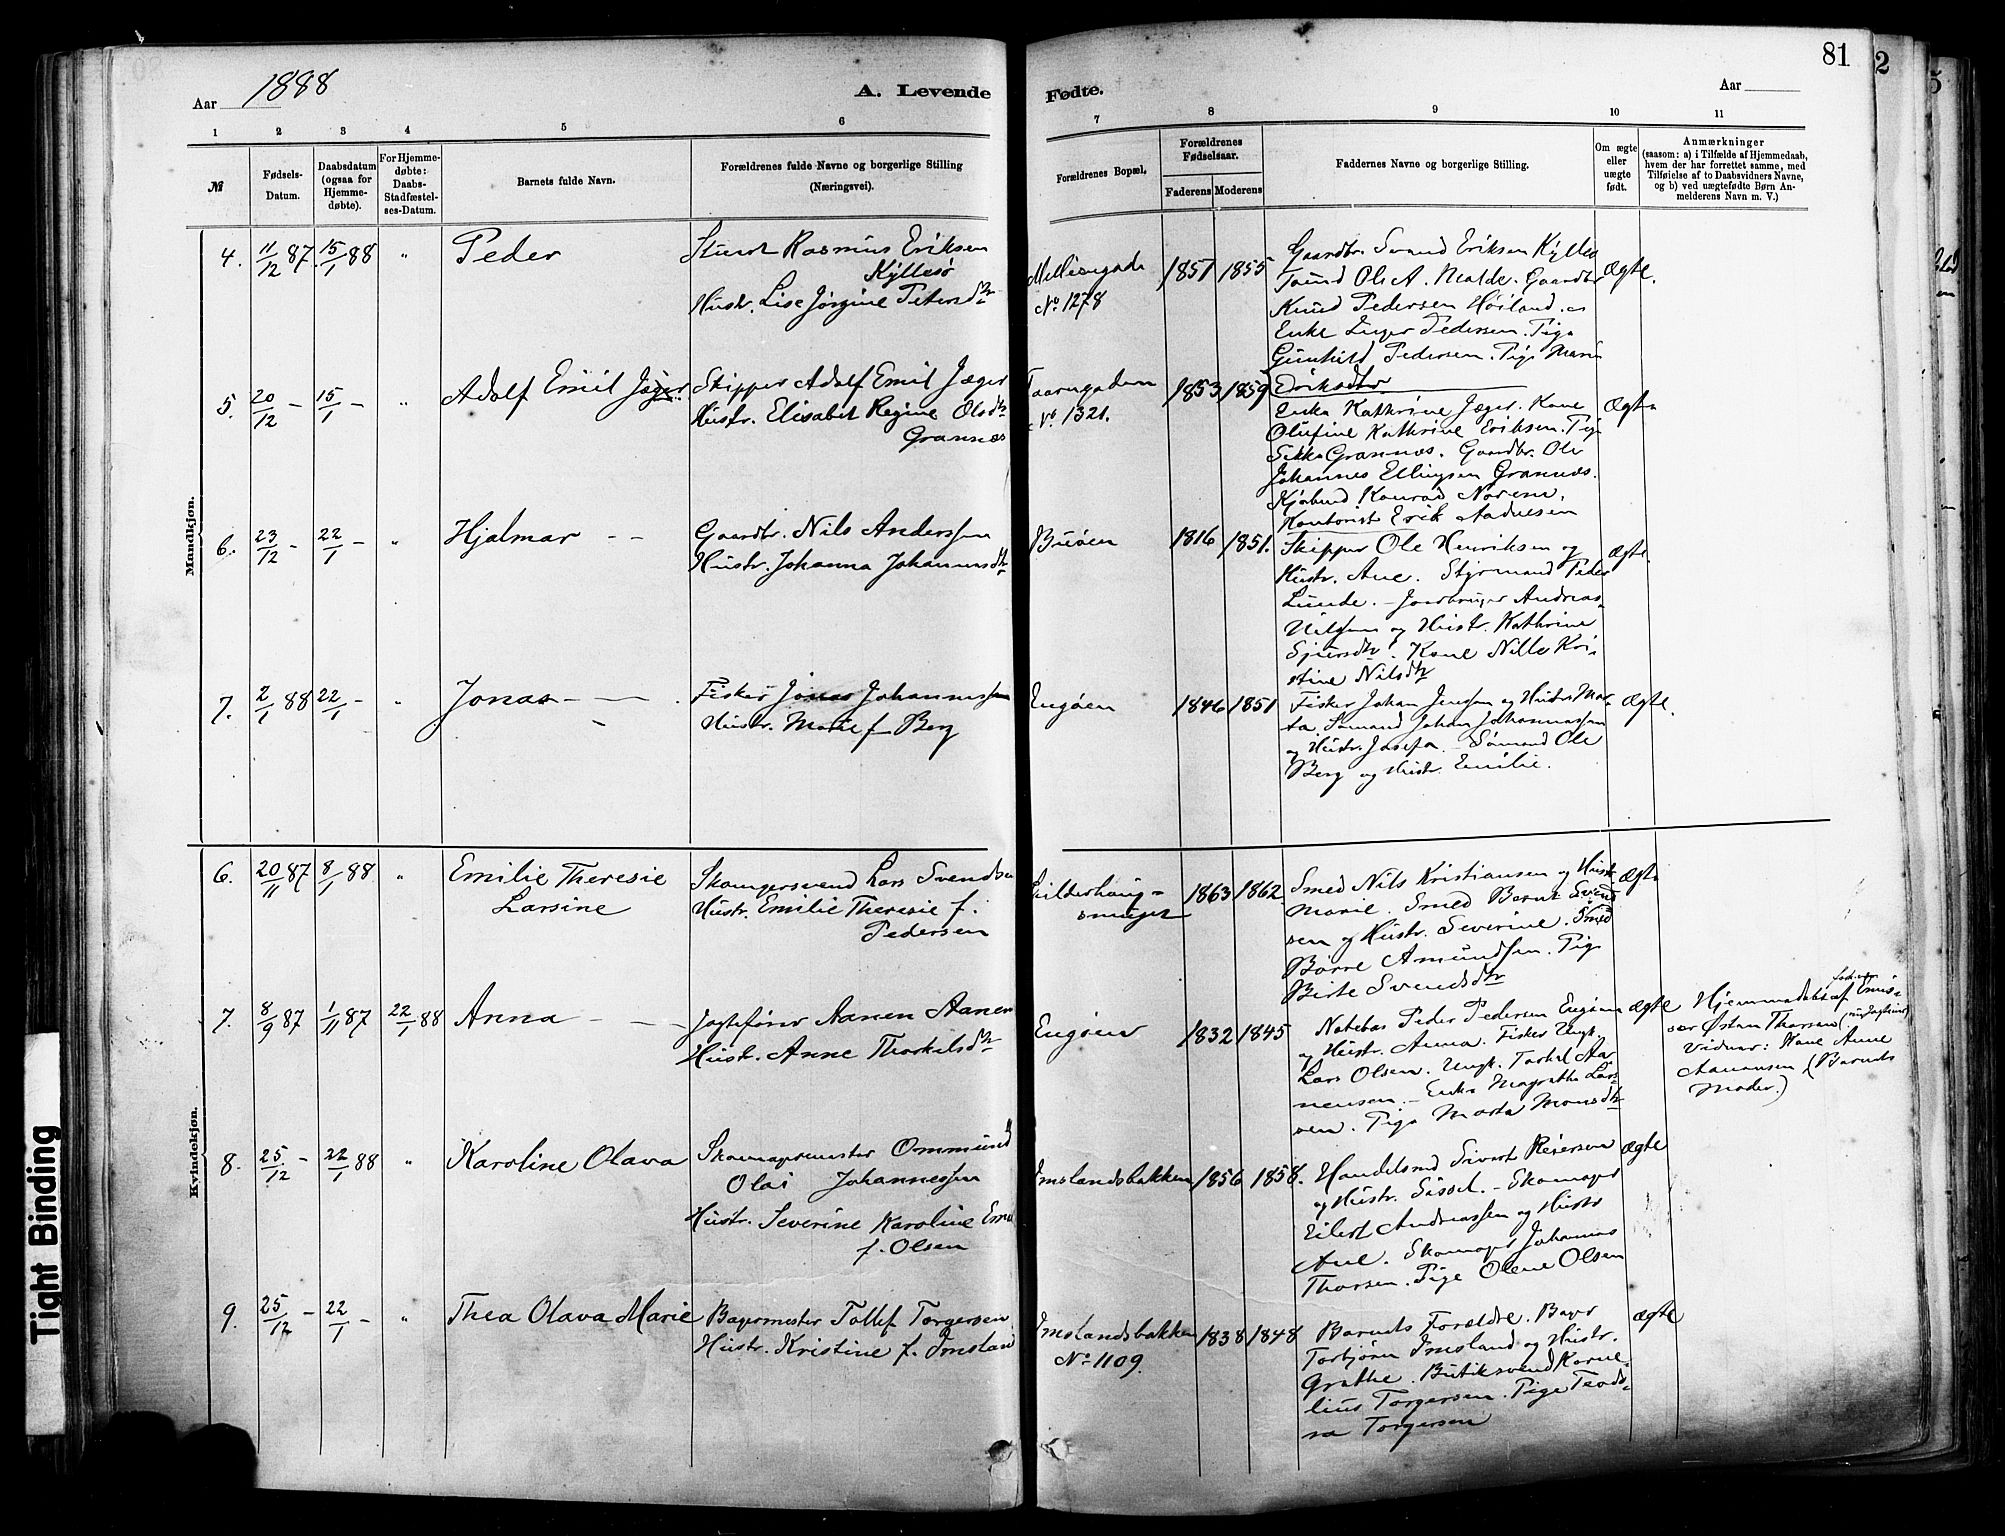 81
2
Aar 1888
A. Levende
Fødte.
Aar
1 2 3 4 5 6 7 8 9 10 11
№
Fødsels-
Datum.
Daabsdatum
(ogsaa for
Hjemme-
døbte).
For Hjemme-
døbte:
Daabs-
Stadfæstel-
ses-Datum.
Barnets fulde Navn.
Forældrenes fulde Navne og borgerlige Stilling
(Næringsvei).
Forældrenes Bopæl.
Forældrenes
Fødselsaar.
Faderens Moderens
Faddernes Navne og borgerlige Stilling.
Om ægte
eller
uægte
født.
Anmærkninger
(saasom: a) i Tilfælde af Hjemmedaab,
hvem der har forrettet samme, med
Tilføielse af to Daabsvidners Navne,
og b) ved uægtefødte Børn An-
melderens Navn m. V.)
Mandkjøn.
4. 11/12 87. 15/1 88 „ Peder
Rasmus Eriksen
Kyllesø
Hustr. Lise Jørgine Petersdtr
№ 1278
1851 1855
Gaardbr. Svend Eriksen Kylles
Ole A. Malde. Gaardbr
Knud Pedersen Høiland.
Enke Inger Pedersen. Pige
Gunhild Pedersen. Pige Mari
Eriksdtr
Ægte.
5. 20/12 – 15/1 – „ Adolf Emil Jæger.
Skipper Adolf Emil Jæger
Hustr. Elisabet Regine Olsdtr
Grannæs
№ 1321.
1853 1859
Enke Kathrine Jæger. Kone
Olufine Kathrine Eriksen. Pige
Sikke Grannæs. Gaardbr. Ole
Johannes Ellingsen Grannæs.
Konrad Norem.
Kontorist Erik Aadnesen
Ægte
6. 23/12 – 22/1 – „ Hjalmar – –
Gaardbr. Nils Anderssen
Hustr. Johanna Johannesdtr
Buøen
1816 1851.
Skipper Ole Henriksen og
Hustr. Ane. Styrmand Peder
Lunde. – Jordbruger Andreas
Nilssen og Hustr. Kathrine
Sjursdtr. Kone Nille Kri-
stine Nilsdtr
Ægte.
7. 2/1 88 22/1 – „ Jonas – –
Fisker Jonas Johannessen
Hustr. Marie f. Berg
Engøen
1846 1851
Fisker Johan Jenssen og Hustr. Mar-
ta. Sømand Johan Johannessen
og Hustr. Josefa. – Sømand Ole
Berg og Hustr. Emilie.
Ægte.
Kvindekjøn.
6. 20/11 87 8/1 88 „ Emilie Theresie
Larsine
Skomagersvend Lars Svendsen
Hustr. Emilie Theresie f.
Pedersen
1863 1862.
Smed Nils Kristiansen og Hustr
Marie. Smed Bernt Svend
sen og Hustr. Severine. Smed
Børre Amundsen. Pige
Birte Svendsdtr
Ægte
7. 8/9 87 1/11 87 22/1 88 Anna – –
Jagtefører Aanen Aanen
Hustr. Anne Thorkilsdtr
Engøen
1832 1845
Notebas Peder Pedersen Engøen
og Hustr. Anna. Fisker Ungk.
Lars Olsen. Ungk. Torkel Aa-
nensen. – Enke Magrethe Lars-
sen. Pige Marta Monsdtr
Ægte
Hjemmedøbt af
Østen Thorsen
Vidner: Kone Anne
Aanensen (Barnets
Moder.)
8. 25/12 – 22/1 88 „ Karoline Olava
Skomagermester Ommund
Olai Johannessen
Hustr. Severine Karoline
f. Olsen
Imslandsbakken
1856 1858.
Handelsmd Sivert Reiersen
og Hustr. Sissel. – Skomager
Eilert Andreassen og Hustr
Ane. Skomager Johannes
Thorsen. Pige Olene Olsen
Ægte
9. 25/12 – 22/1 – „ Thea Olava Marie
Bagermester Tollef Torgersen
Hustr. Kristine f. Imsland
Imslandsbakken
№ 1109.
1838 1848
Barnets Forældre. Bager
Torbjørn Imsland og Hustr.
Grethe. Butiksvend Korne-
lius Torgersen. Pige Teodo-
ra Torgersen
Ægte
Tight Binding